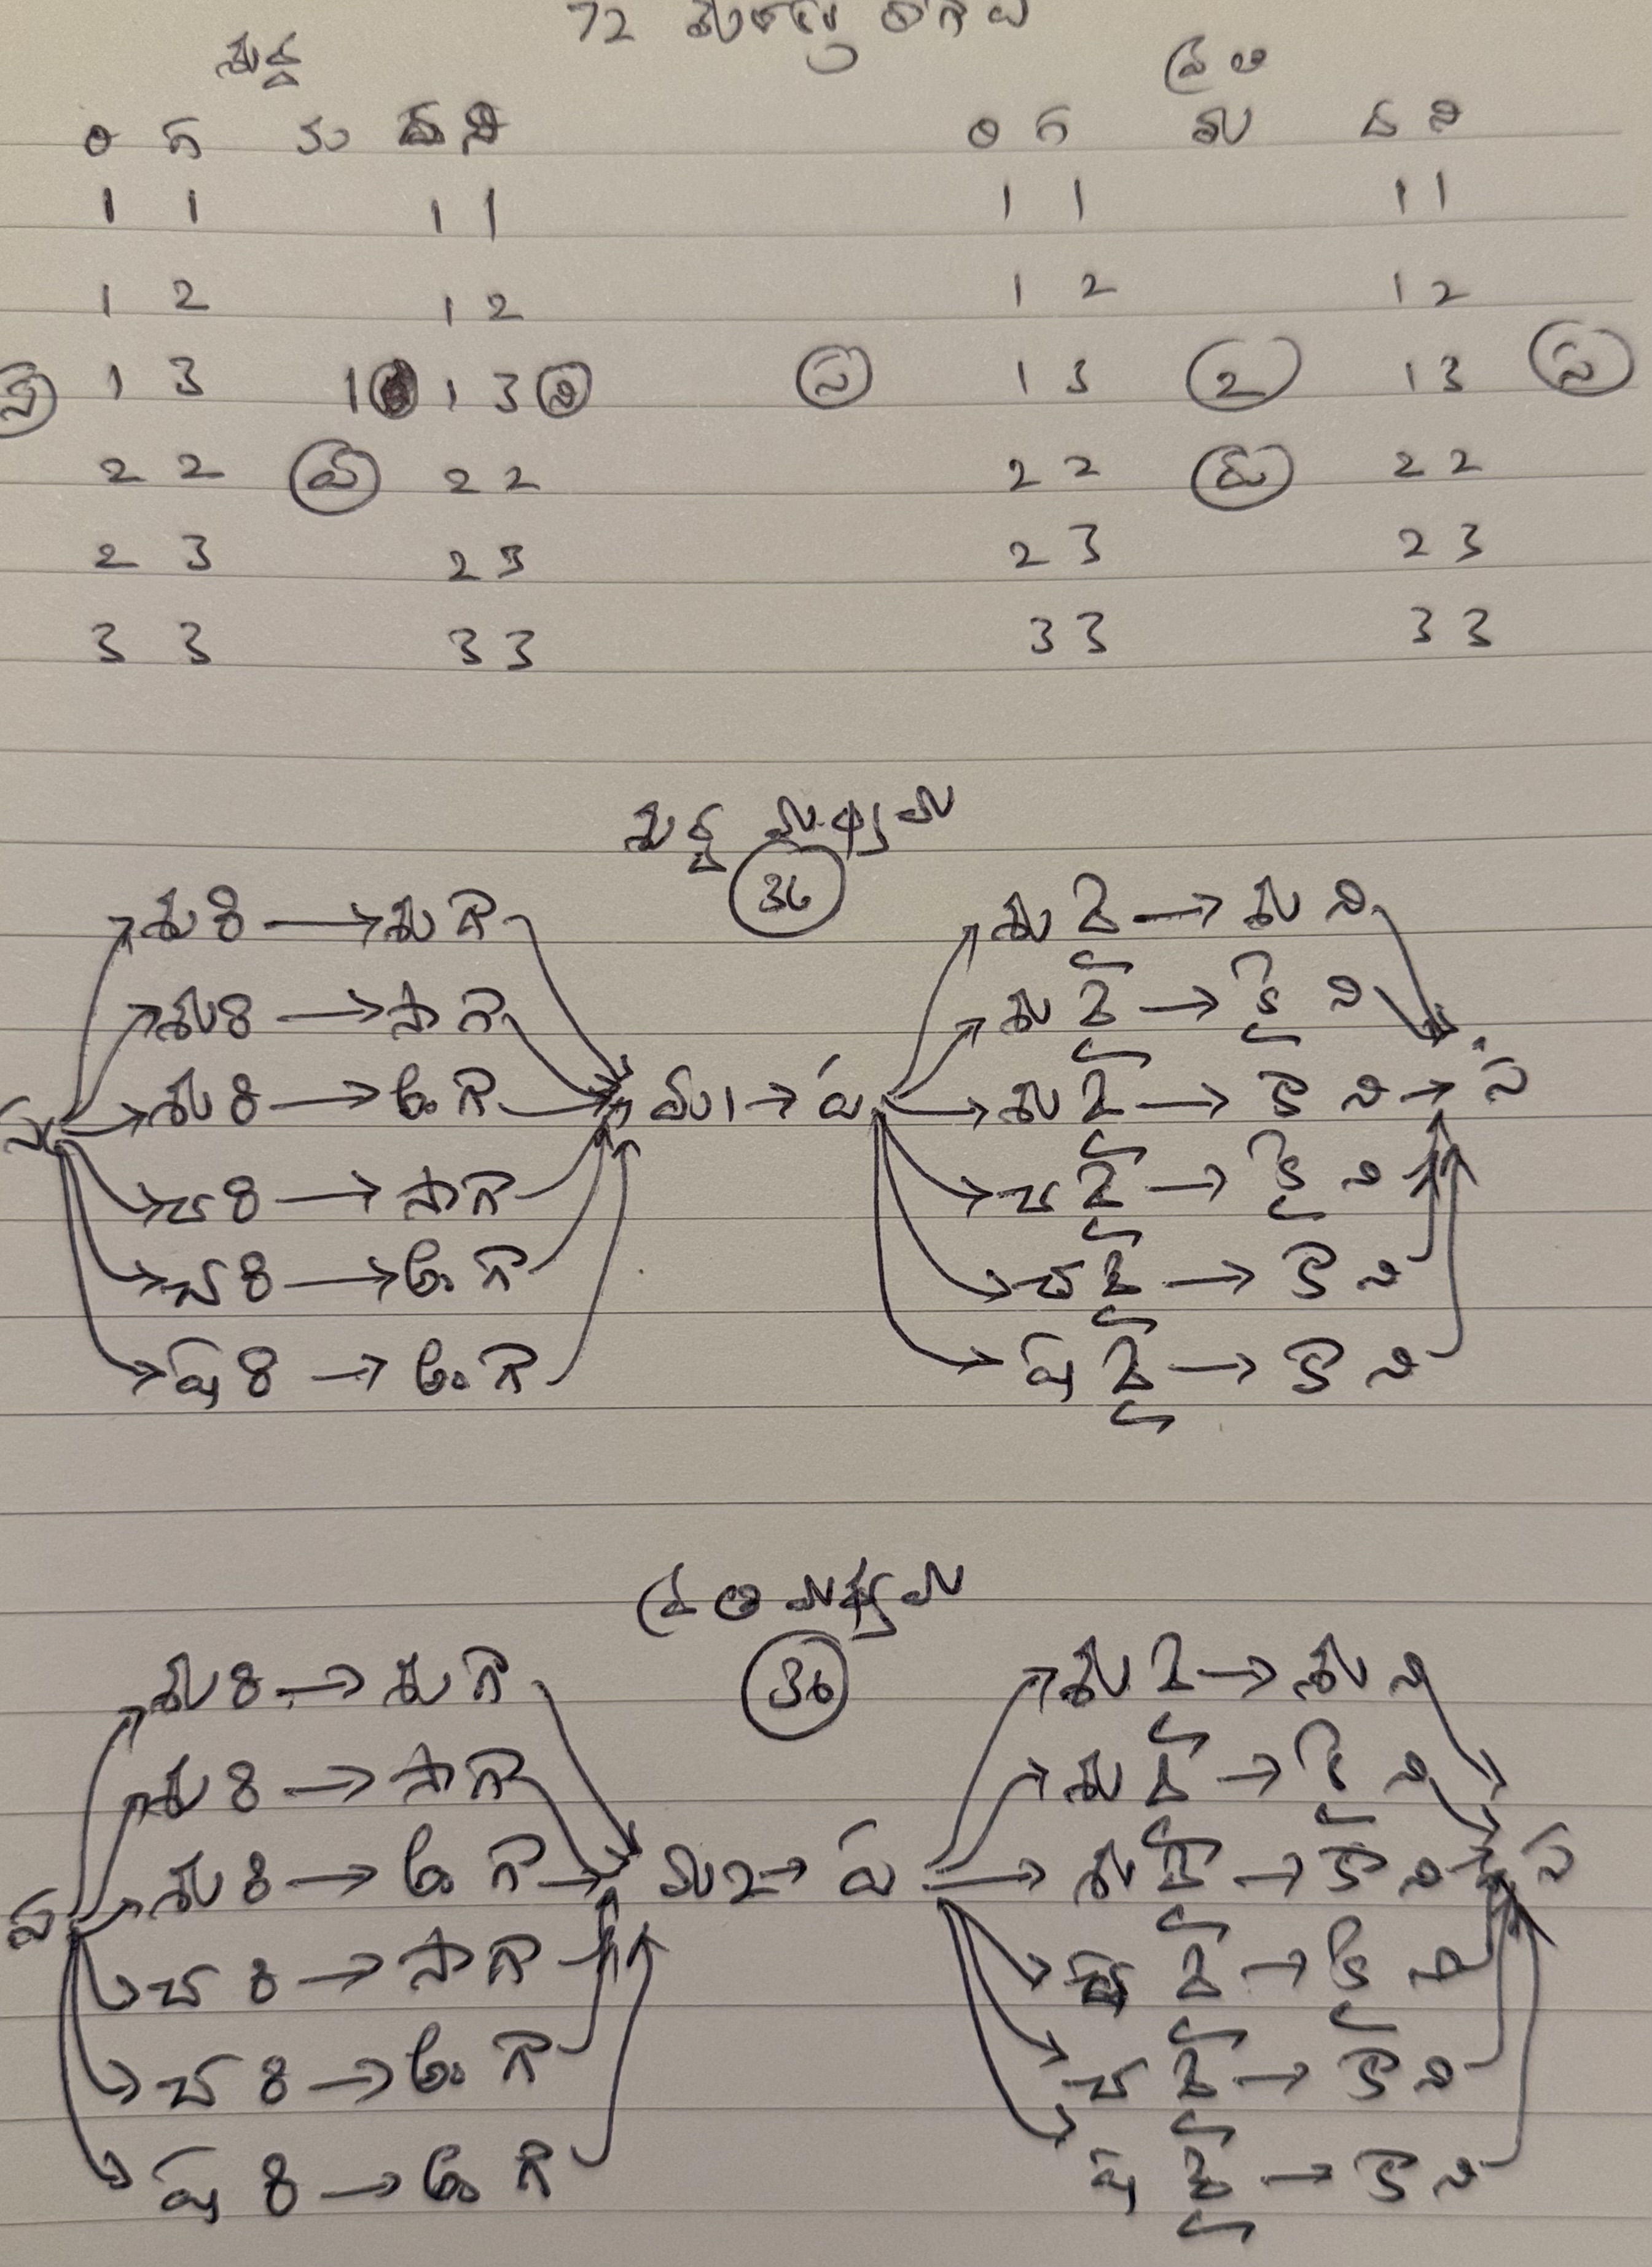 72
శుద్ధ ప్రతి
రి గ మ ద ని రి గ మ ద ని
1 1 1 1 1 1 1 1
1 2 1 2 1 2 1 2
స 1 3 1 1 3 స స 1 3 2 1 3 స
2 2 ప 2 2 2 2 ప 2 2
2 3 2 3 2 3 2 3
3 3 3 3 3 3 3 3
శుద్ధ మధ్యమ
36
శు రి → శు గ శు ద → శు ని
శు రి → సా గ శు ద → కై ని
స శు రి → అం గ మ1 → ప శు ద → కా ని → స
చ రి → సా గ చ ద → కై ని
చ రి → అం గ చ ద → కా ని
ష రి → అం గ ష ద → కా ని
ప్రతి మధ్యమ
36
శు రి → శు గ శు ద → శు ని
శు రి → సా గ శు ద → కై ని
స శు రి → అం గ → మ2 → ప శు ద → కా ని → స
చ రి → సా గ చ ద → కై ని
చ రి → అం గ చ ద → కా ని
ష రి → అం గ ష ద → కా ని